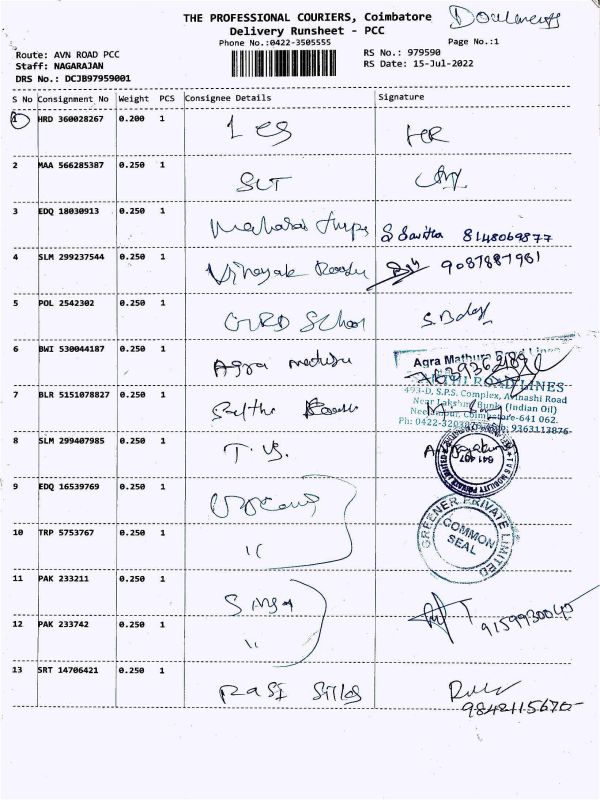 THE PROFESSIONAL COURIERS, Coimbatore
Documents
Delivery Runsheet - PCC
Phone No.:0422-3505555
Page No.:1
Route: AVN ROAD PCC
Staff: NAGARAJAN
DRS No.: DCJB97959001
RS No.: 979590
RS Date: 15-Jul-2022
S No Consignment No Weight PCS Consignee Details Signature
1 HRD 360028267 0.200 1
2 MAA 566285387 0.250 1 SLT
3 EDQ 18030913 0.250 1 S Savitha 8148069877
4 SLM 299237544 0.250 1 Vinayak 9087887961
5 POL 2542302 0.250 1 GRD School
6 BWI 530044187 0.250 1 Agra
Agra Mathura Road Lines
ROAD LINES
493-D, S.P.S. Complex, Avinashi Road
Near Lakshmi Bunk (Indian Oil)
Coimbatore-641 062.
9363113876
7 BLR 5151078827 0.250 1
8 SLM 299407985 0.250 1 T.VS.
TVS MOBILITY PRIVATE LIMITED
641 407
9 EDQ 16539769 0.250 1
10 TRP 5753767 0.250 1 "
GREENER PRIVATE LIMITED
COMMON
SEAL
11 PAK 233211 0.250 1
12 PAK 233742 0.250 1 "
9159930045
13 SRT 14706421 0.250 1 RASI